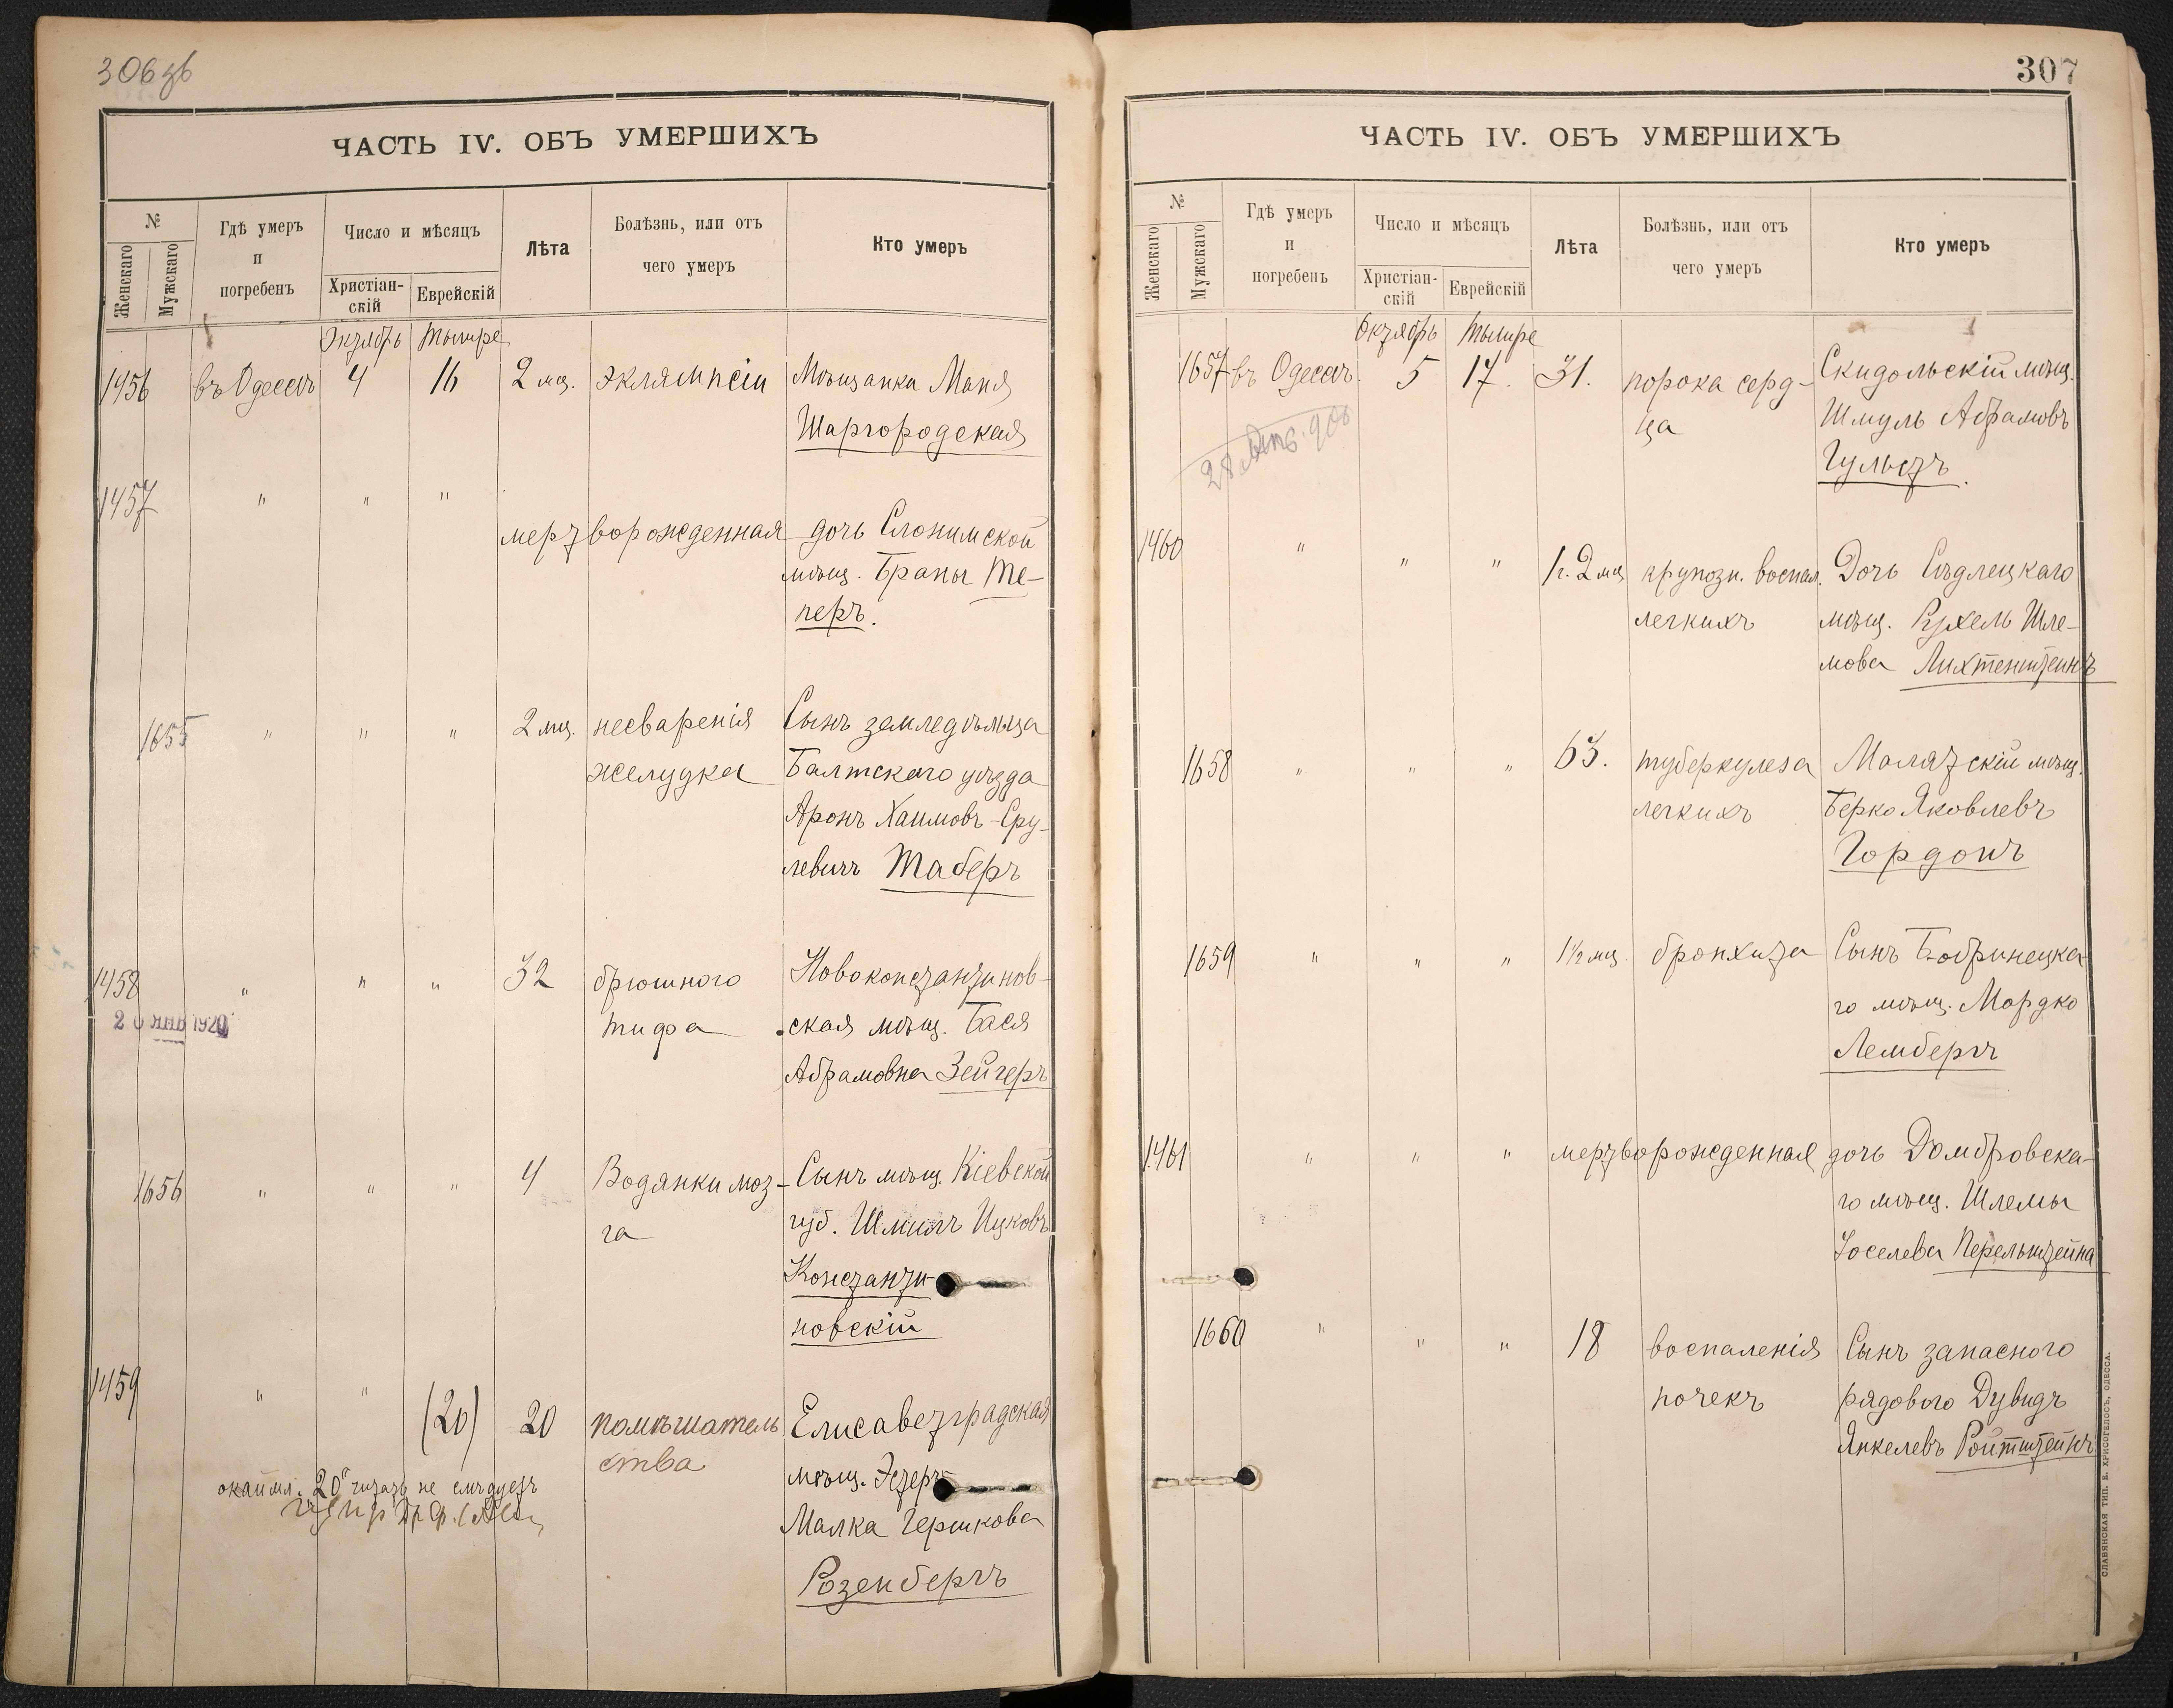 306 зв
ЧАСТЬ IV. ОБЪ УМЕРШИХЪ
№
Женскаго
Мужскаго
Гдѣ умеръ
и
погребенъ
Число и мѣсяцъ
Христіан-
скій
Еврейскій
Лѣта
Болѣзнь, или отъ
чего умеръ
Кто умеръ
Октябрь Тышре
1456 въ Одессѣ 4 16 2 мц. эклямпсіи Мѣщанка Маня
Шаргородская
1457 " " "
мертворожденная дочь Слонимской
мѣщ. Браны Те-
перъ.
1655 " " " 2 мц. несваренія Сынъ земледѣльца
желудка Балтскаго уѣзда
Аронъ Хаимовъ-Сру-
левичъ Таберъ
1458 " " " 32 брюшного Новоконстантинов-
2 ЯНВ 1920
тифа ская мѣщ. Бася
Абрамовна Зейгеръ
1656 " " " 4 Водянки моз- Сынъ мѣщ. Кіевской
га губ. Шмилъ Ицковъ
Константи-
новскій
1459 " " (20) 20 помѣшатель Елисаветградская
ства мѣщ. Эстеръ
окаймл. 20 читать не слѣдуетъ
Малка Гершкова
Розенбергъ
307
ЧАСТЬ IV. ОБЪ УМЕРШИХЪ
№
Женскаго
Мужскаго
Гдѣ умеръ
и
погребенъ
Число и мѣсяцъ
Христіан-
скій
Еврейскій
Лѣта
Болѣзнь, или отъ
чего умеръ
Кто умеръ
Октябрь Тышре
1657 въ Одессѣ. 5 17. 31. порока серд- Скидольскій мѣщ.
ца Шмуль Абрамовъ
Гульстъ.
28
1460 " " " 1 г. 2 мц крупозн. воспал. Дочь Сѣдлецкаго
легкихъ мѣщ. Рухель Шле-
мова Лихтенштейнъ
1658 " " " 63. туберкулеза Малятскій мѣщ.
легкихъ Берко Яковлевъ
Гордонъ
1659 " " " 1½ мц. бронхита Сынъ Бобринецка-
го мѣщ. Мордко
Лембергъ
1461 " " " мертворожденная дочь Домбровска-
го мѣщ. Шлемы
Іоселева Перельштейна
1660 " " " 18 воспаленія Сынъ запасного
почекъ рядового Дувидъ
Янкелевъ Ройтштейнъ
СЛАВЯНСКАЯ ТИП. Е. ХРИСОГЕЛОСЪ, ОДЕССА.